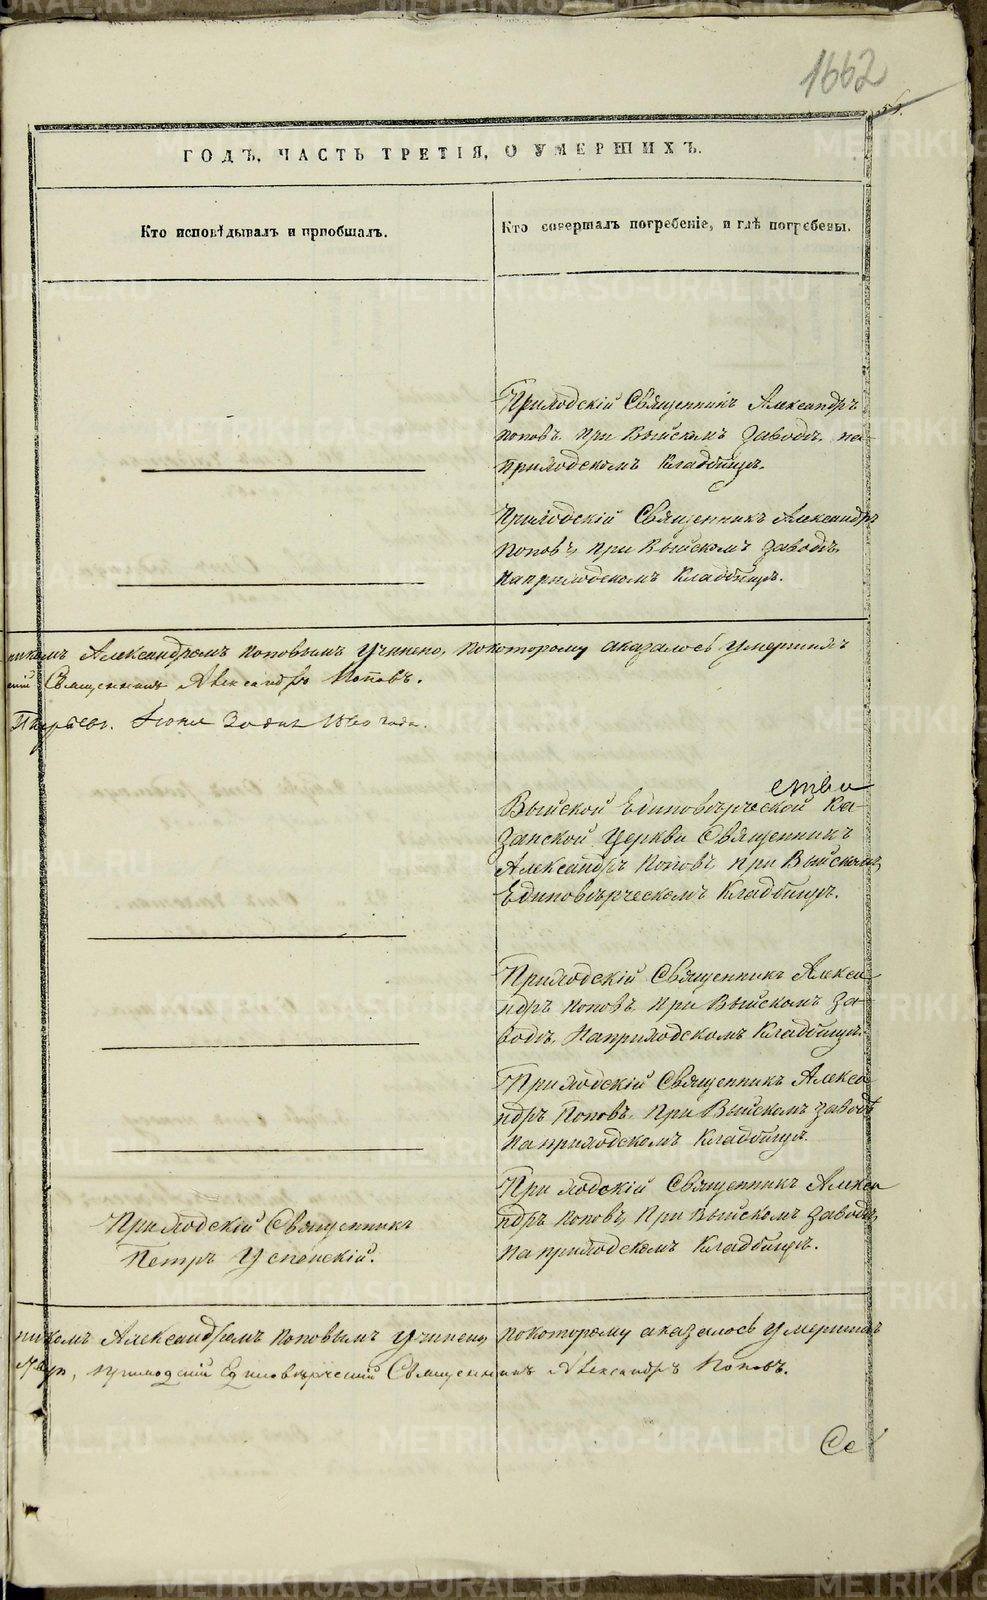 1662
ГОДЪ, ЧАСТЬ ТРЕТІЯ, О УМЕРШИХЪ.
Кто исповѣдывалъ и пріобщалъ.
Кто совершалъ погребеніе, и гдѣ погребены.
Приходскій Священникъ Александръ
Поповъ, при Выйскомъ заводѣ, на
приходскомъ Кладбищѣ.
Приходскій Священникъ Александръ
Поповъ, при Выйскомъ заводѣ,
на приходскомъ Кладбищѣ.
никомъ Александромъ Поповымъ Учинено, по которому оказалось умершихъ
Священникъ Александръ Поповъ.
Іюня 30 дня 1860 года.
Выйской Единовѣрческой Ка-
занской Церкви Священникъ
Александръ Поповъ, при Выйскомъ
Единовѣрческомъ Кладбищѣ.
Приходскій Священникъ Алекса-
ндръ Поповъ, при Выйскомъ за-
водѣ, на приходскомъ Кладбищѣ.
Приходскій Священникъ Алекса-
ндръ Поповъ, при Выйскомъ заводѣ
на приходскомъ Кладбищѣ.
Приходскій Священникъ
Петръ Успенскій.
Приходскій Священникъ Алекса-
ндръ Поповъ, при Выйскомъ заводѣ,
на приходскомъ Кладбищѣ.
никомъ Александромъ Поповымъ Учинено, по которому оказалось умершихъ
приходскій Единовѣрческій Священникъ Александръ Поповъ.
Се
METRIKI.GASO-URAL.RU